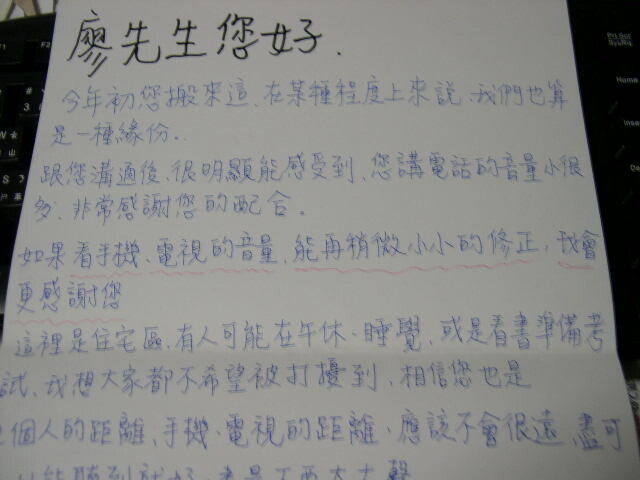 廖先生您好.
今年初您搬來這、在某種程度上來說、我們也算
是一種緣份..
跟您溝通後、很明顯能感受到、您講電話的音量小很
多、非常感謝您的配合。
如果看手機、電視的音量、能再稍微小小的修正，我會
更感謝您
這裡是住宅區、有人可能在午休、睡覺、或是看書準備考
試、我想大家都不希望被打擾到、相信您也是
個人的距離、手機、電視的距離、應該不會很遠、盡可
能聽到就好、
Prt Scr
SysRq
Home
Inse
F1
F2